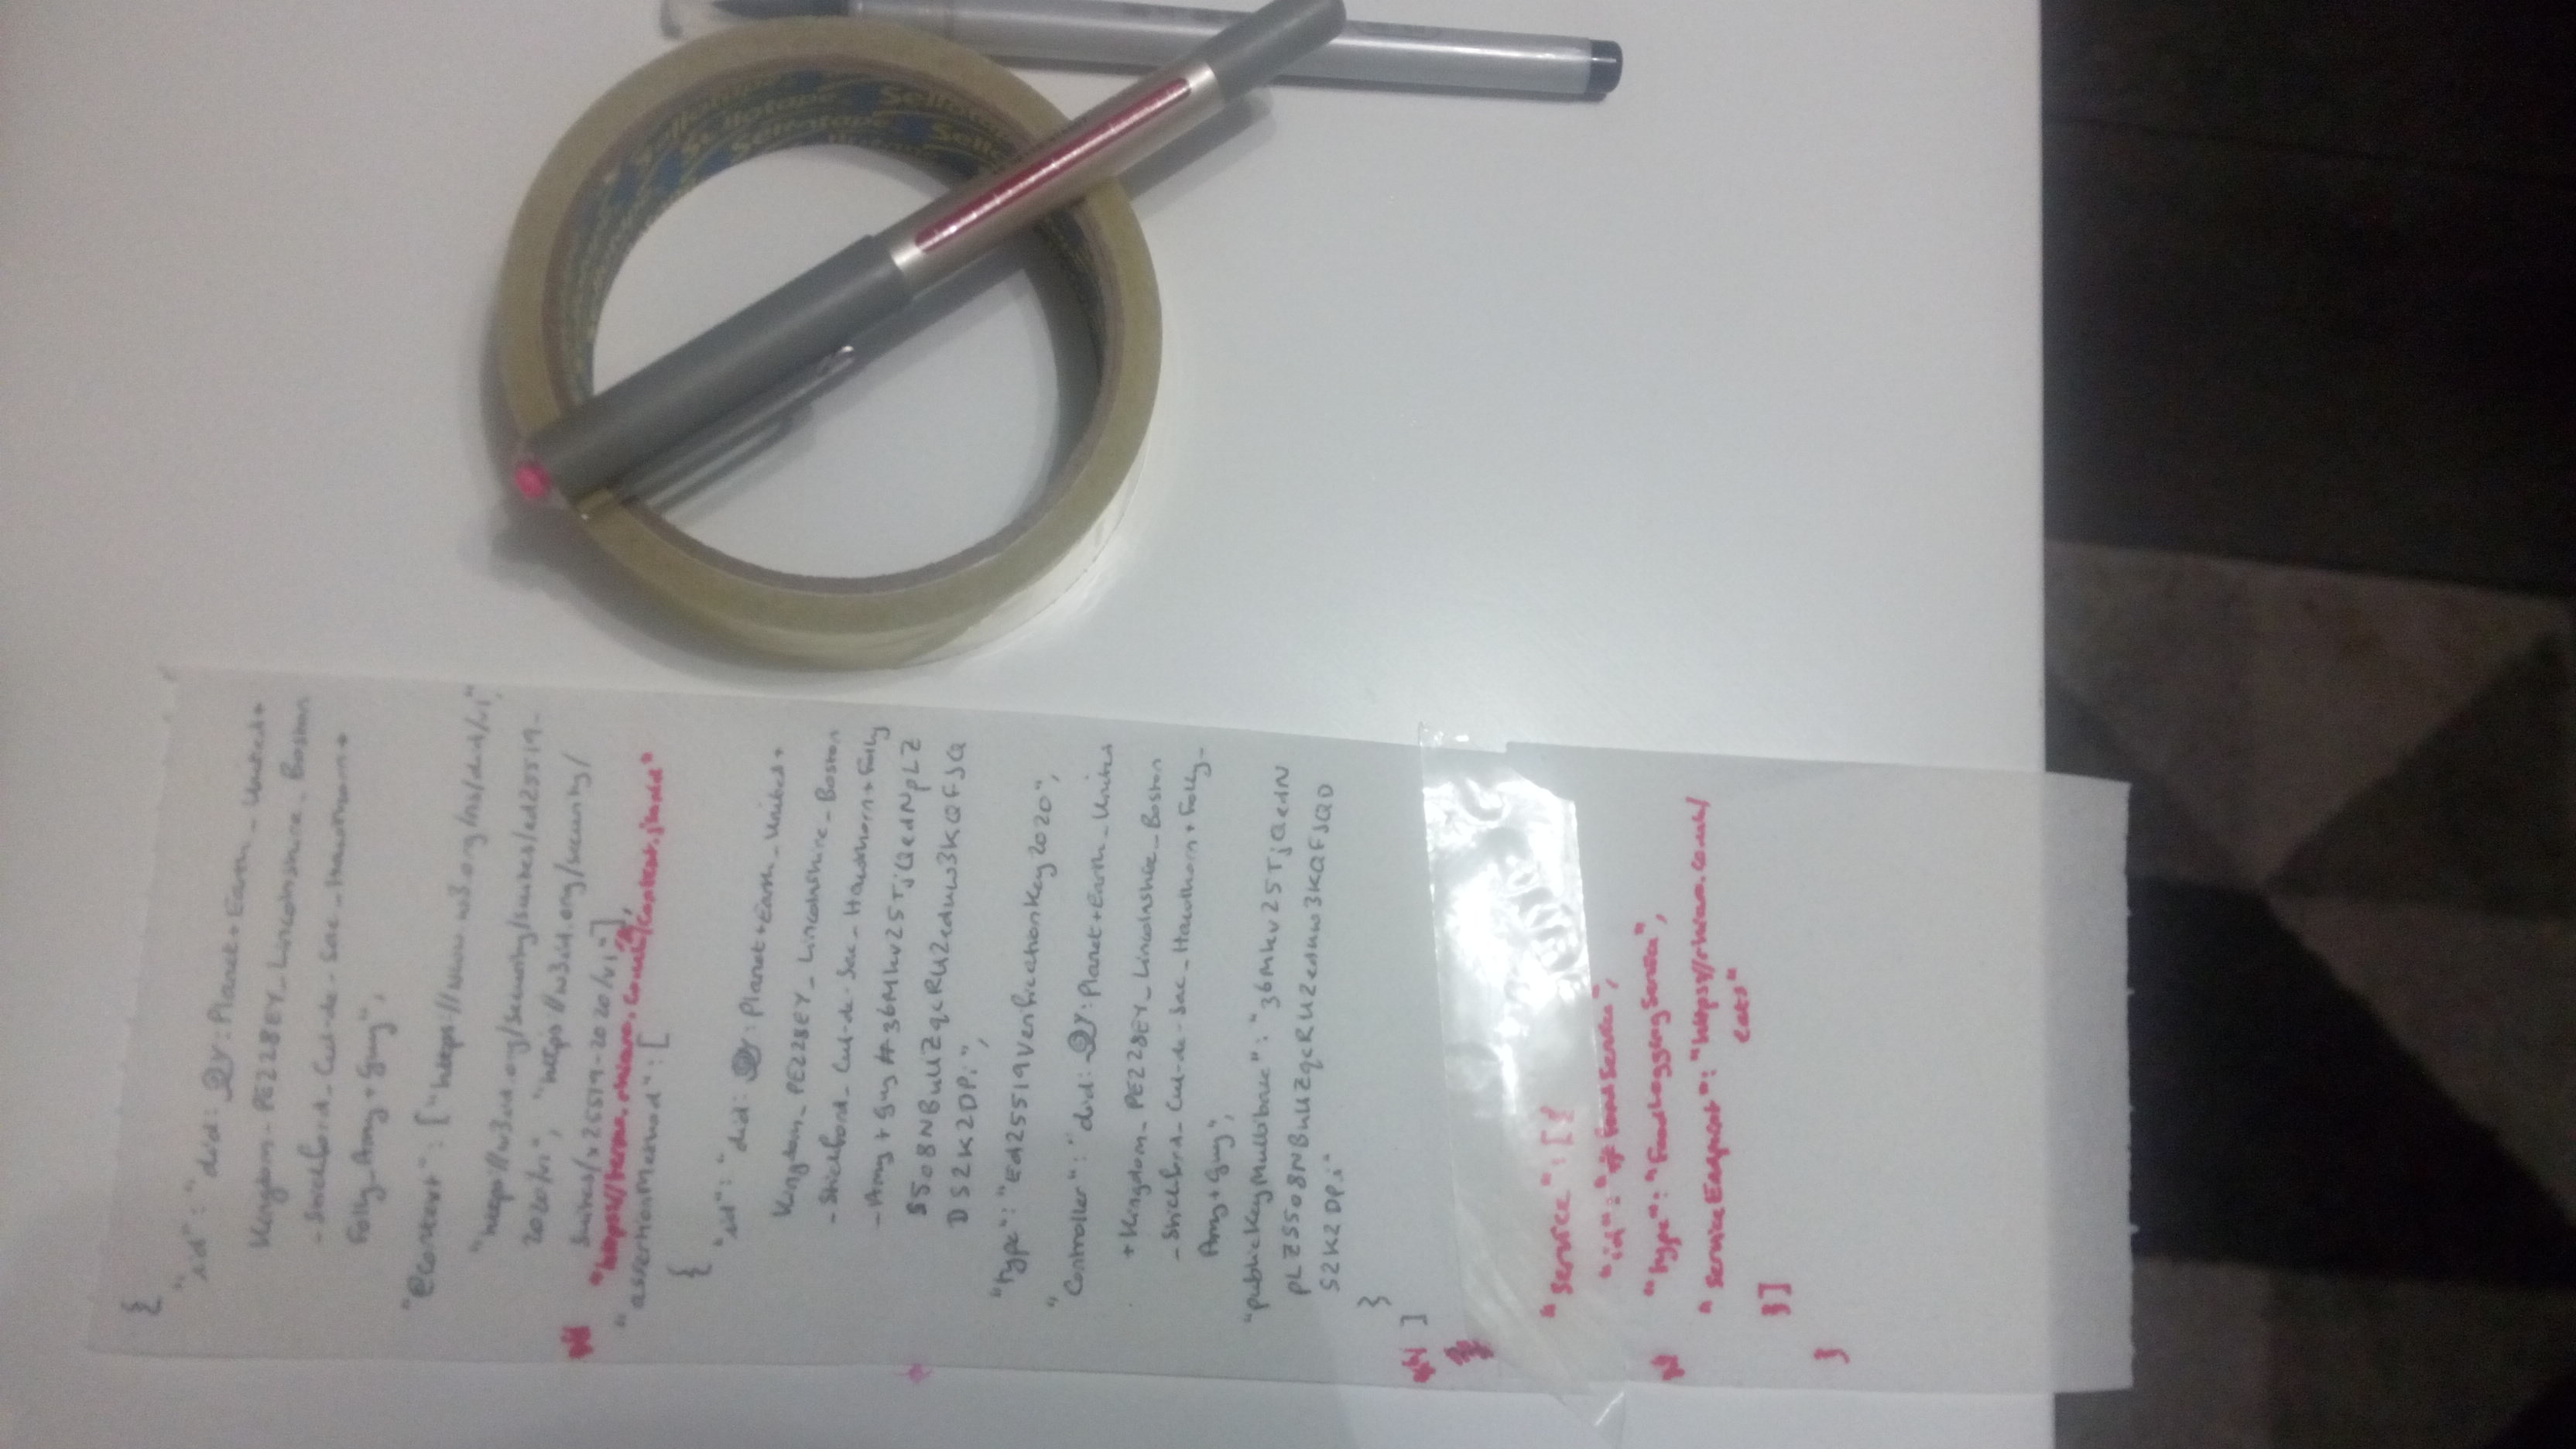 {
"id": "did: :Planet+Earth_United+
Kingdom_PE228EY_Lincolnshire_Boston
-Shickford_Cul-de-Sac_Hawthorn+
Folly_Amy+Guy",
"@Context": ["https://www.w3.org/ns/did/v1",
"https://w3id.org/security/suites/ed25519-
2020/v1", "https://w3id.org/security/
Suites/x25519-2020/v1"],
Context.jsonld"
"assertionMethod": [
{
"id": "did: :Planet+Earth_United+
Kingdom_PE228EY_Lincolnshire_Boston
-Shickford_Cul-de-Sac_Hawthorn+Folly
-Amy+Guy#36Mkv25TjQedNpLZ
S5o8NBuUZqcRUZeduw3KQFJQ
DS2K2DPi",
"type": "Ed25519VerificationKey2020",
"Controller": "did: :Planet+Earth_United
+Kingdom_PE228EY_Lincolnshire_Boston
-Shickford_Cul-de-Sac_Hawthorn+Folly-
Amy+Guy",
"publicKeyMultibase": "36Mkv25TjQedN
pLZS5o8NBuUZqcRUZeduw3KQFJQD
S2K2DPi"
}
]
"Service": [{
"id": "#FoodService",
"type": "FoodLoggingService",
"ServiceEndpoint": "https://rhiaro.co.uk/
eats"
}]
}
Sellotape
Sellotape
Sellotape